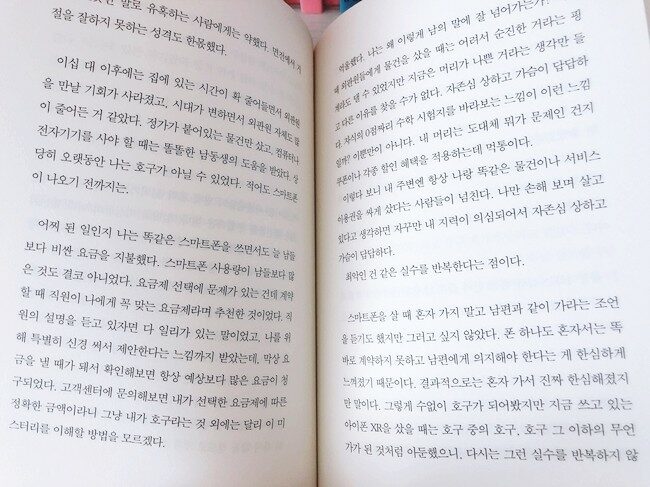 말로 유혹하는 사람에게는 약했다. 면전에서 거
절을 잘하지 못하는 성격도 한몫했다.
이십 대 이후에는 집에 있는 시간이 확 줄어들면서 외판원
을 만날 기회가 사라졌고, 시대가 변하면서 외판원 자체도 많
이 줄어든 거 같았다. 정가가 붙어있는 물건만 샀고, 컴퓨터나
전자기기를 사야 할 때는 똘똘한 남동생의 도움을 받았다. 상
당히 오랫동안 나는 호구가 아닐 수 있었다. 적어도 스마트폰
이 나오기 전까지는.
어찌 된 일인지 나는 똑같은 스마트폰을 쓰면서도 늘 남들
보다 비싼 요금을 지불했다. 스마트폰 사용량이 남들보다 많
은 것도 결코 아니었다. 요금제 선택에 문제가 있는 건데 계약
할 때 직원이 나에게 꼭 맞는 요금제라며 추천한 것이었다. 직
원의 설명을 듣고 있자면 다 일리가 있는 말이었고, 나를 위
해 특별히 신경 써서 제안한다는 느낌까지 받았는데, 막상 요
금을 낼 때가 돼서 확인해보면 항상 예상보다 많은 요금이 청
구되었다. 고객센터에 문의해보면 내가 선택한 요금제에 따른
정확한 금액이라니 그냥 내가 호구라는 것 외에는 달리 이 미
스터리를 이해할 방법을 모르겠다.
억울했다. 나는 왜 이렇게 남의 말에 잘 넘어가는가?
때 외판원들에게 물건을 샀을 때는 어려서 순진한 거라는 핑
계라도 댈 수 있었지만 지금은 머리가 나쁜 거라는 생각만 들
고 다른 이유를 찾을 수가 없다. 자존심 상하고 가슴이 답답하
다. 자식의 0점짜리 수학 시험지를 바라보는 느낌이 이런 느낌
일까? 이뿐만이 아니다. 내 머리는 도대체 뭐가 문제인 건지
쿠폰이나 각종 할인 혜택을 적용하는데 먹통이다.
이렇다 보니 내 주변엔 항상 나랑 똑같은 물건이나 서비스
이용권을 싸게 샀다는 사람들이 넘친다. 나만 손해 보며 살고
있다고 생각하면 자꾸만 내 지력이 의심되어서 자존심 상하고
가슴이 답답하다.
최악인 건 같은 실수를 반복한다는 점이다.
스마트폰을 살 때 혼자 가지 말고 남편과 같이 가라는 조언
을 듣기도 했지만 그러고 싶지 않았다. 폰 하나도 혼자서는 똑
바로 계약하지 못하고 남편에게 의지해야 한다는 게 한심하게
느껴졌기 때문이다. 결과적으로는 혼자 가서 진짜 한심해졌지
만 말이다. 그렇게 수없이 호구가 되어봤지만 지금 쓰고 있는
아이폰 XR을 샀을 때는 호구 중의 호구, 호구 그 이하의 무언
가가 된 것처럼 아둔했으니, 다시는 그런 실수를 반복하지 않